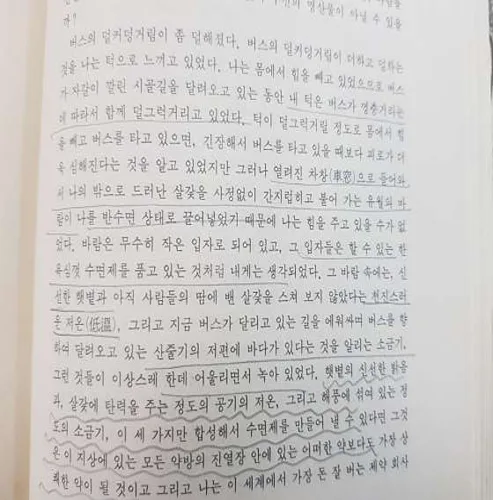 명산물이 아닐 수 있을
까?
버스의 덜커덩거림이 좀 덜해졌다. 버스의 덜커덩거림이 더하고 덜하는
것을 나는 턱으로 느끼고 있었다. 나는 몸에서 힘을 빼고 있었으므로 버스
가 자갈이 깔린 시골길을 달려오고 있는 동안 내 턱은 버스가 껑충거리는
데 따라서 함께 덜그럭거리고 있었다. 턱이 덜그럭거릴 정도로 몸에서 힘
을 빼고 버스를 타고 있으면, 긴장해서 버스를 타고 있을 때보다 피로가 더
욱 심해진다는 것을 알고 있었지만 그러나 열려진 차창(車窓)으로 들어와
서 나의 밖으로 드러난 살갗을 사정없이 간지럽히고 불어 가는 유월의 바
람이 나를 반수면 상태로 끌어넣었기 때문에 나는 힘을 주고 있을 수가 없
었다. 바람은 무수히 작은 입자로 되어 있고, 그 입자들은 할 수 있는 한
욕심껏 수면제를 품고 있는 것처럼 내게는 생각되었다. 그 바람 속에는, 신
선한 햇볕과 아직 사람들의 땀에 밴 살갗을 스쳐 보지 않았다는 천진스러
운 저온(低溫), 그리고 지금 버스가 달리고 있는 길을 에워싸며 버스를 향
하여 달려오고 있는 산줄기의 저편에 바다가 있다는 것을 알리는 소금기,
그런 것들이 이상스레 한데 어울리면서 녹아 있었다. 햇볕의 신선한 밝음
과, 살갗에 탄력을 주는 정도의 공기의 저온, 그리고 해풍에 섞여 있는 정
도의 소금기, 이 세 가지만 합성해서 수면제를 만들어 낼 수 있다면 그것
은 이 지상에 있는 모든 약방의 진열장 안에 있는 어떠한 약보다도 가장 상
쾌한 약이 될 것이고 그리고 나는 이 세계에서 가장 돈 잘 버는 제약 회사